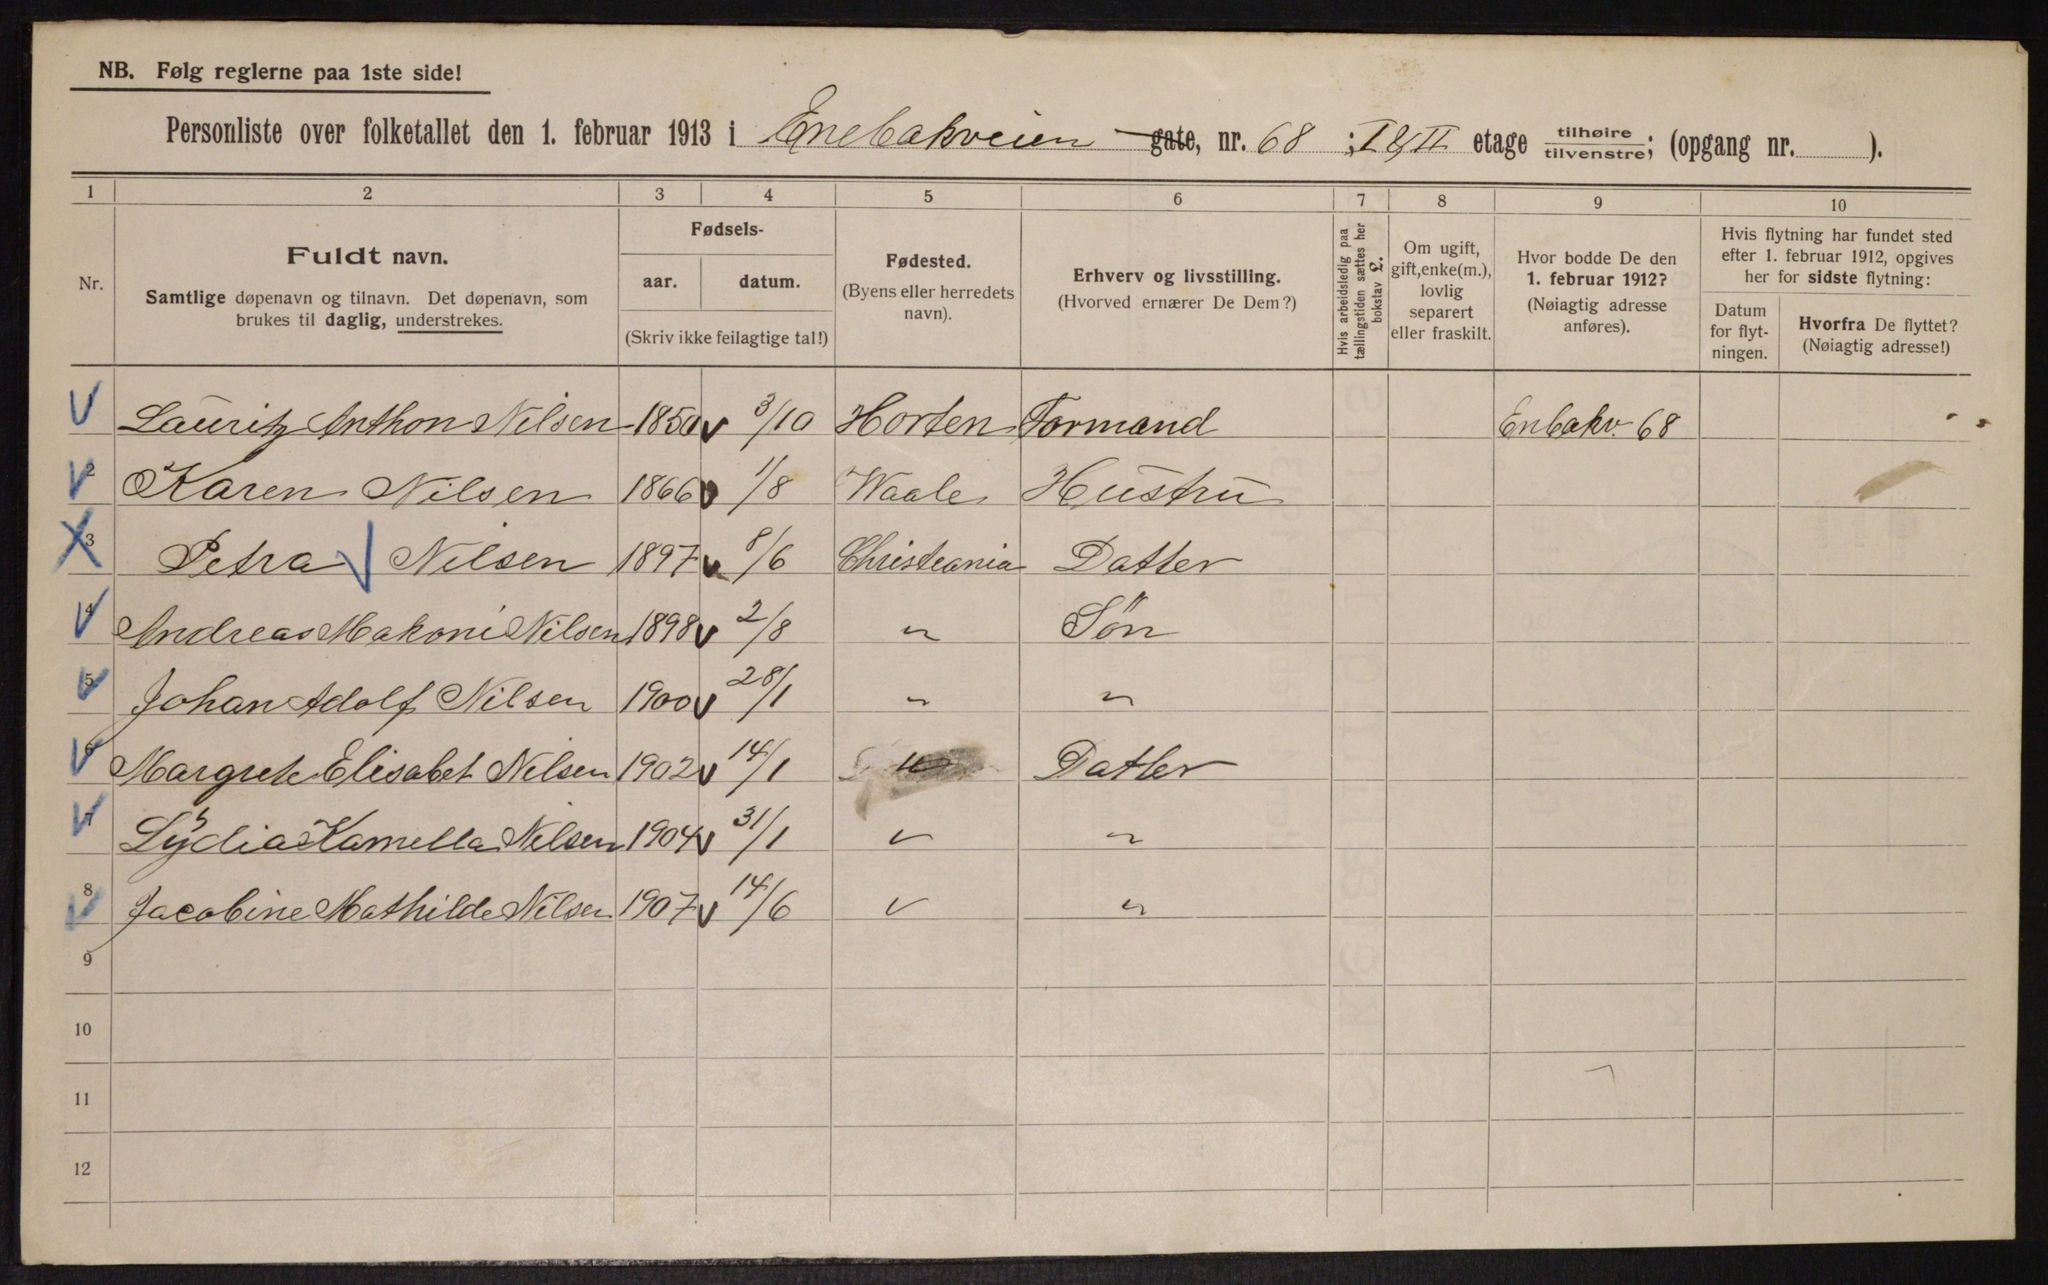 NB. Følg reglerne paa 1ste side!
Personliste over folketallet den 1. februar 1913 i Enebakveien gate, nr. 68 ; I & II etage tilhøire tilvenstre; (opgang nr. ).
1 2 3 4 5 6 7 8 9 10
Nr.
Fuldt navn.
Samtlige døpenavn og tilnavn. Det døpenavn, som
brukes til daglig, understrekes.
Fødsels-
aar. datum.
(Skriv ikke feilagtige tal!)
Fødested.
(Byens eller herredets
navn).
Erhverv og livsstilling.
(Hvorved ernærer De Dem?)
Hvis arbeidsledig paa
tællingstiden sættes her
bokstav L.
Om ugift,
gift, enke(m.),
lovlig
separert
eller fraskilt.
Hvor bodde De den
1. februar 1912?
(Nøiagtig adresse
anføres).
Hvis flytning har fundet sted
efter 1. februar 1912, opgives
her for sidste flytning:
Datum
for flyt-
ningen.
Hvorfra De flyttet?
(Nøiagtig adresse!)
Lauritz Anthon Nilsen 1850 3/10 Horten Formand Enbakv. 68
2 Karen Nilsen 1866 1/8 Waale Hustru
3 Petra Nilsen 1897 8/6 Christeania Datter
4 Andreas Makoni Nilsen 1898 2/8 " Søn
5 Johan Adolf Nilsen 1900 28/1 " "
6 Margrete Elisabet Nilsen 1902 14/1 " Datter
7 Lydia Kamella Nilsen 1904 31/1 " "
8 Jacobine Mathilde Nilsen 1907 14/6 " "
9
10
11
12